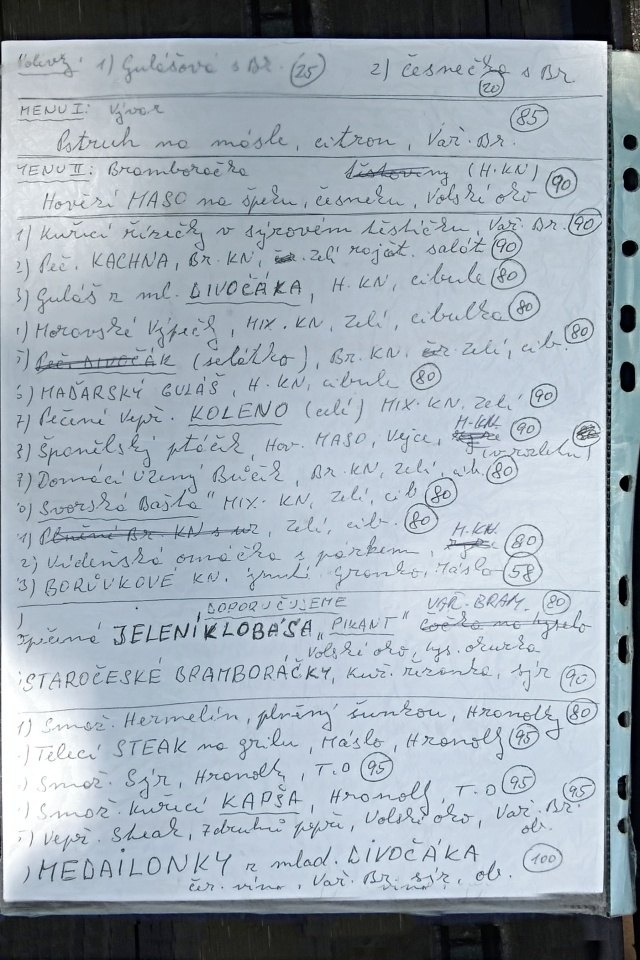 Polévky: 1) Gulášová s Br. (25) 2) česnečka s Br (20)
MENU I: Vývar
Pstruh na másle, citron, Vař. Br. (85)
MENU II: Bramboračka těstoviny (H.KN)
Hovězí MASO na špeku, česneku, Volské oko (90)
1) Kuřecí řízečky v sýrovém těstíčku, Vař. Br. (90)
2) Peč. KACHNA, Br. KN, zelí rajčat. salát (90)
3) Guláš z ml. DIVOČÁKA, H. KN, cibule (80)
) Moravské Výpečky, MIX. KN, zelí, cibulka (80)
5) Peč. DIVOČÁK (selátko), Br. KN. zelí, cib. (80)
6) MAĎARSKÝ GULÁŠ, H. KN, cibule (80)
7) Pečené Vepř. KOLENO (celé) MIX. KN, zelí (90)
8) Španělský ptáček, Hov. MASO, Vejce, H.KN (90)
) Domácí Uzený Bůček, Br. KN, zelí, cib (80)
0) Svorská Bašta" MIX. KN, Zelí, cib (80)
1) Plněné Br. KN s uz, Zelí, cib. (80)
2) Vídeňská omáčka s párkem, H.KN. (80)
3) BORŮVKOVÉ KN. Máslo (58)
DOPORUČUJEME VAŘ. BRAM. (80)
JELENÍ KLOBÁSA „PIKANT" čočka na kyselo
Volské oko, kys. okurka
STAROČESKÉ BRAMBORÁČKY, Kuř. sýr (90)
1) Smaž. Hermelín, plněný šunkou, Hranolky (80)
) Telecí STEAK na grilu, Máslo, Hranolky (95)
) Smaž. Sýr, Hranolky, T.O (95)
) Smaž. Kuřecí KAPSA, Hranolky, T.O (95)
5) Vepř. Steak, zdruhů pepře, Volské oko, Vař. Br. (95)
ob.
) MEDAILONKY z mlad. DIVOČÁKA (100)
čer. víno, Vař. Br. sýr, ob.
víno,